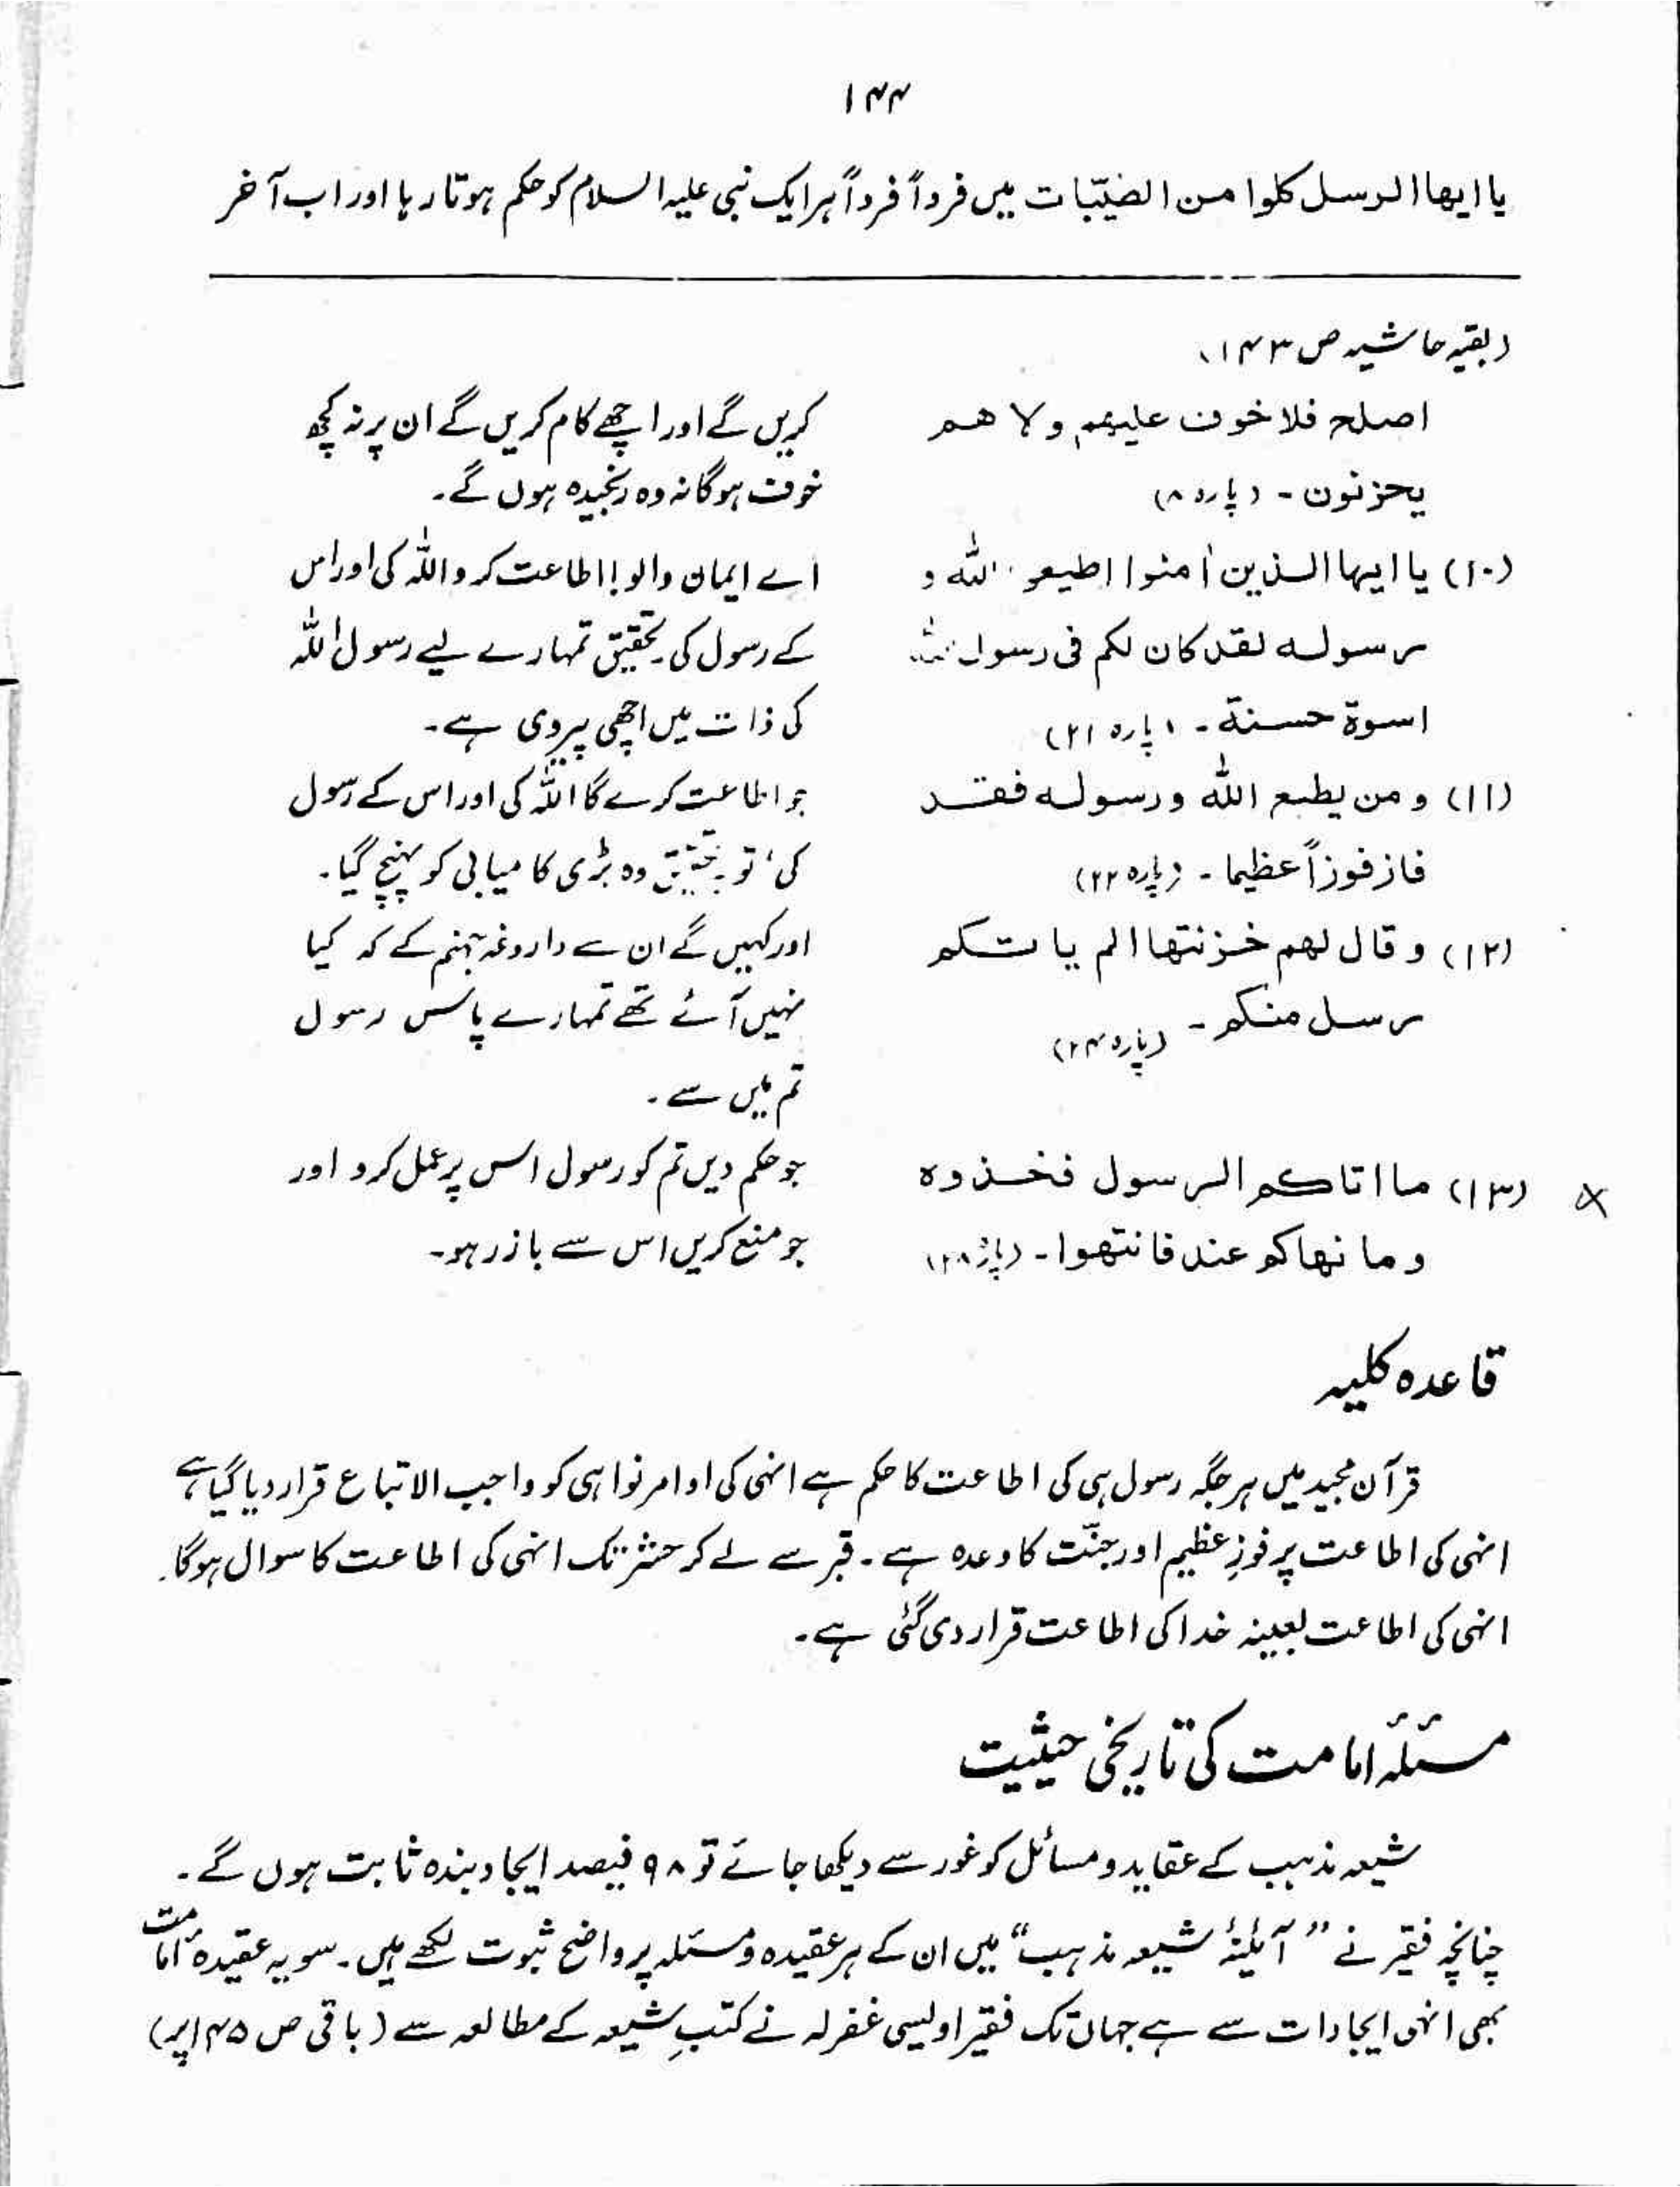 ۱۴۴
یا ایھا الرسل کلوا من الضیّبات میں فرداً فرداً ہر ایک نبی علیہ السلام کو حکم ہوتا رہا اور اب آخر
(بقیہ حاشیہ ص ۱۴۳)
اصلح فلا خوف علیھم ولا ھم
یحزنون ۔ (پارہ ۸)
کریں گے اور اچھے کام کریں گے ان پر نہ کچھ
خوف ہوگا نہ وہ رنجیدہ ہوں گے۔
(۱۰) یا ایھا الذین اٰمنوا اطیعو اللہ و
رسولہ لقد کان لکم فی رسول
اسوۃ حسنۃ ۔ (پارہ ۲۱)
اے ایمان والو! اطاعت کرو اللہ کی اور اس
کے رسول کی۔ تحقیق تمہارے لیے رسول اللہ
کی ذات میں اچھی پیروی ہے۔
(۱۱) ومن یطع اللہ ورسولہ فقد
فاز فوزاً عظیما ۔ (پارہ ۲۲)
جو اطاعت کرے گا اللہ کی اور اس کے رسول
کی، تو بتحقیق وہ بڑی کامیابی کو پہنچ گیا۔
(۱۲) وقال لھم خزنتھا الم یا تکم
رسل منکم ۔ (پارہ ۲۴)
اور کہیں گے ان سے داروغہ جہنم کے کہ کیا
نہیں آئے تھے تمہارے پاس رسول
تم میں سے ۔
(۱۳) ما اتاکم الرسول فخذوہ
وما نھاکم عنہ فانتھوا ۔ (پارہ ۲۸)
جو حکم دیں تم کو رسول اس پر عمل کرو اور
جو منع کریں اس سے باز رہو۔
قاعدہ کلیہ
قرآن مجید میں ہر جگہ رسول ہی کی اطاعت کا حکم ہے انہی کی اوامر نواہی کو واجب الاتباع قرار دیا گیا ہے
انہی کی اطاعت پر فوزِ عظیم اور جنّت کا وعدہ ہے ۔ قبر سے لے کر حشر تک انہی کی اطاعت کا سوال ہوگا۔
انہی کی اطاعت بعینہ خدا کی اطاعت قرار دی گئی ہے۔
مسئلہ امامت کی تاریخی حیثیت
شیعہ مذہب کے عقاید و مسائل کو غور سے دیکھا جائے تو ۹۸ فیصد ایجاد بندہ ثابت ہوں گے۔
چنانچہ فقیر نے "آئینۂ شیعہ مذہب" میں ان کے ہر عقیدہ و مسئلہ پر واضح ثبوت لکھے ہیں۔ سو یہ عقیدہ امامت
بھی انہی ایجادات سے ہے جہاں تک فقیر اویسی غفرلہ نے کتبِ شیعہ کے مطالعہ سے (باقی ص ۱۴۵ پر)